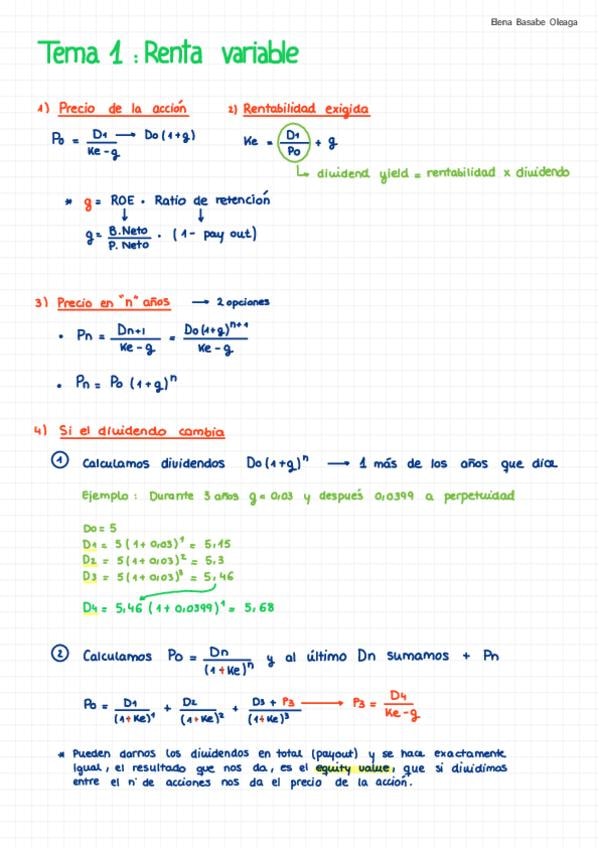 Elena Basabe Oleaga
Tema 1 : Renta variable
1) Precio de la acción
2) Rentabilidad exigida
P₀ = D₁ / (Ke - g) → D₀(1+g)
Ke = D₁/P₀ + g
↳ dividend yield = rentabilidad x dividendo
* g = ROE · Ratio de retención
↓ ↓
g = B.Neto / P.Neto · (1 - pay out)
3) Precio en "n" años → 2 opciones
• Pn = Dn+1 / (Ke - g) = D₀(1+g)ⁿ⁺¹ / (Ke - g)
• Pn = P₀ (1+g)ⁿ
4) Si el dividendo cambia
① Calculamos dividendos D₀(1+g)ⁿ → 1 más de los años que dice
Ejemplo : Durante 3 años g = 0,03 y después 0,0399 a perpetuidad
D₀ = 5
D₁ = 5(1+0,03)¹ = 5,15
D₂ = 5(1+0,03)² = 5,3
D₃ = 5(1+0,03)³ = 5,46
D₄ = 5,46 (1+0,0399)¹ = 5,68
② Calculamos P₀ = Dn / (1+Ke)ⁿ y al último Dn sumamos + Pn
P₀ = D₁ / (1+Ke)¹ + D₂ / (1+Ke)² + D₃ + P₃ / (1+Ke)³ → P₃ = D₄ / (Ke - g)
* Pueden darnos los dividendos en total (payout) y se hace exactamente
igual, el resultado que nos da, es el equity value, que si dividimos
entre el nº de acciones nos da el precio de la acción.